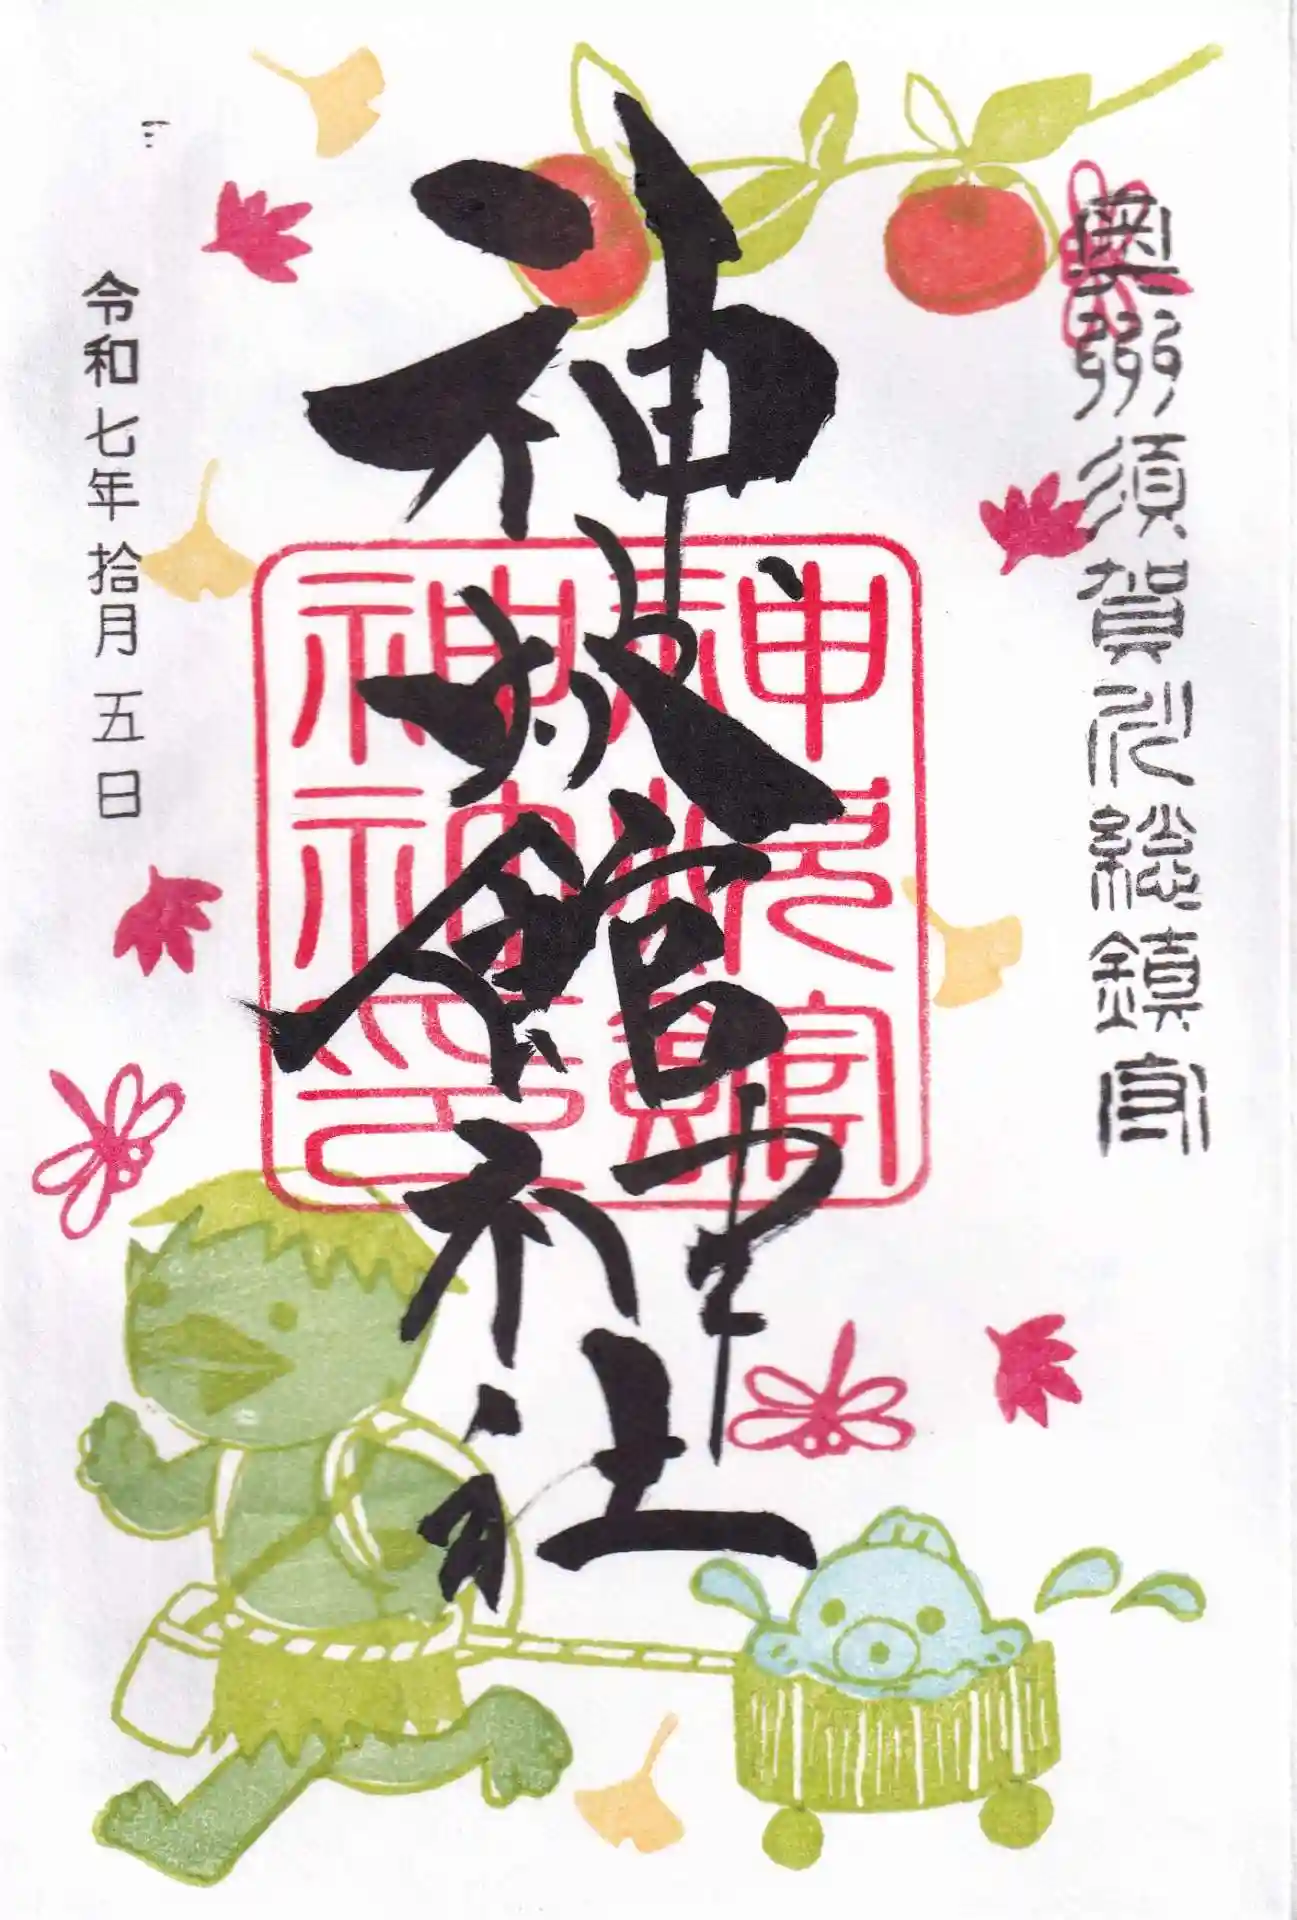 奥州須賀川総鎮守
神炊館神社
神炊館
神社印
令和七年拾月五日